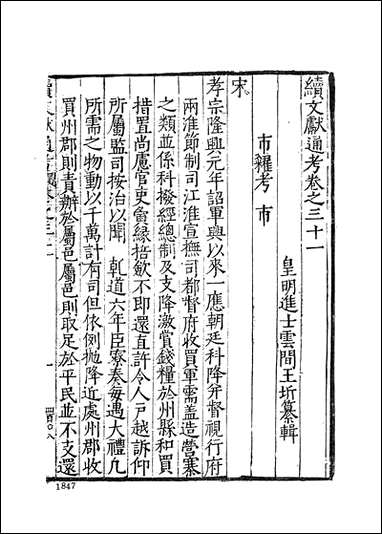 續文獻通考卷之三十一
皇明進士雲間王圻纂輯
市糴考 市
宋
孝宗隆興元年詔軍興以來一應朝廷科降并督視行府
兩淮節制司江淮宣撫司都督府收買軍需蓋造營寨
之類並係科撥經總制及支降激賞錢糧於州縣和買
措置尚慮官吏夤緣掊歛不即還直許令人戸越訴仰
所屬監司按治以聞 乹道六年臣寮奏每遇大禮凢
所需之物動以千萬計有司但依例拋降近處州郡收
買州郡則責辦於屬邑屬邑則取足於平民並不支還
續文獻通考 卷之三十一
一
1847